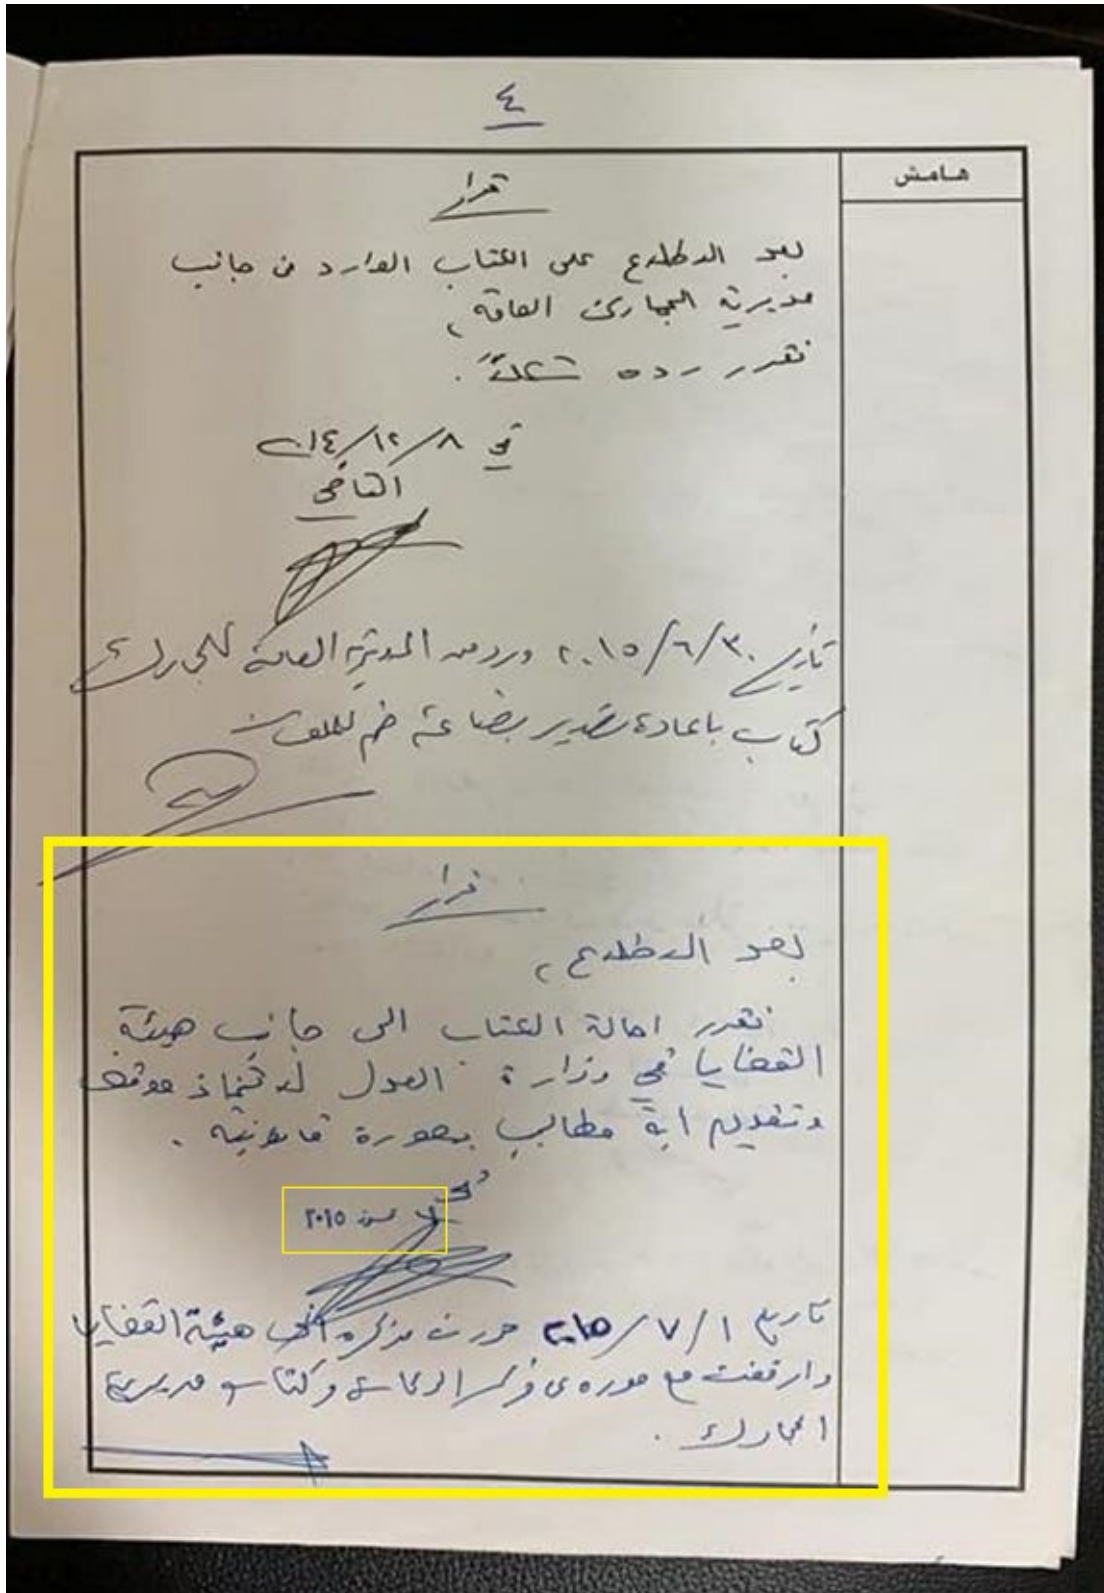 ٤
هامش
قرار
بعد الاطلاع على الكتاب الوارد من جانب
مديرية الجمارك العامة،
نقرر رده شكلاً.
في ٨/١٢/٢٠١٤
القاضي
تاريخ ٣٠/٦/٢٠١٥ ورد من المديرية العامة للجمارك
كتاب باعادة تصدير بضاعة ضم للملف
قرار
بعد الاطلاع،
نقرر احالة الكتاب الى جانب هيئة
القضايا في وزارة العدل لاتخاذ موقف
وتقديم اية مطالب بصورة قانونية.
في
٢٠١٥
تاريخ ١/٧/٢٠١٥ حررت مذكرة الى هيئة القضايا
وارفقت مع صورة عن وكتاب مديرية
الجمارك.